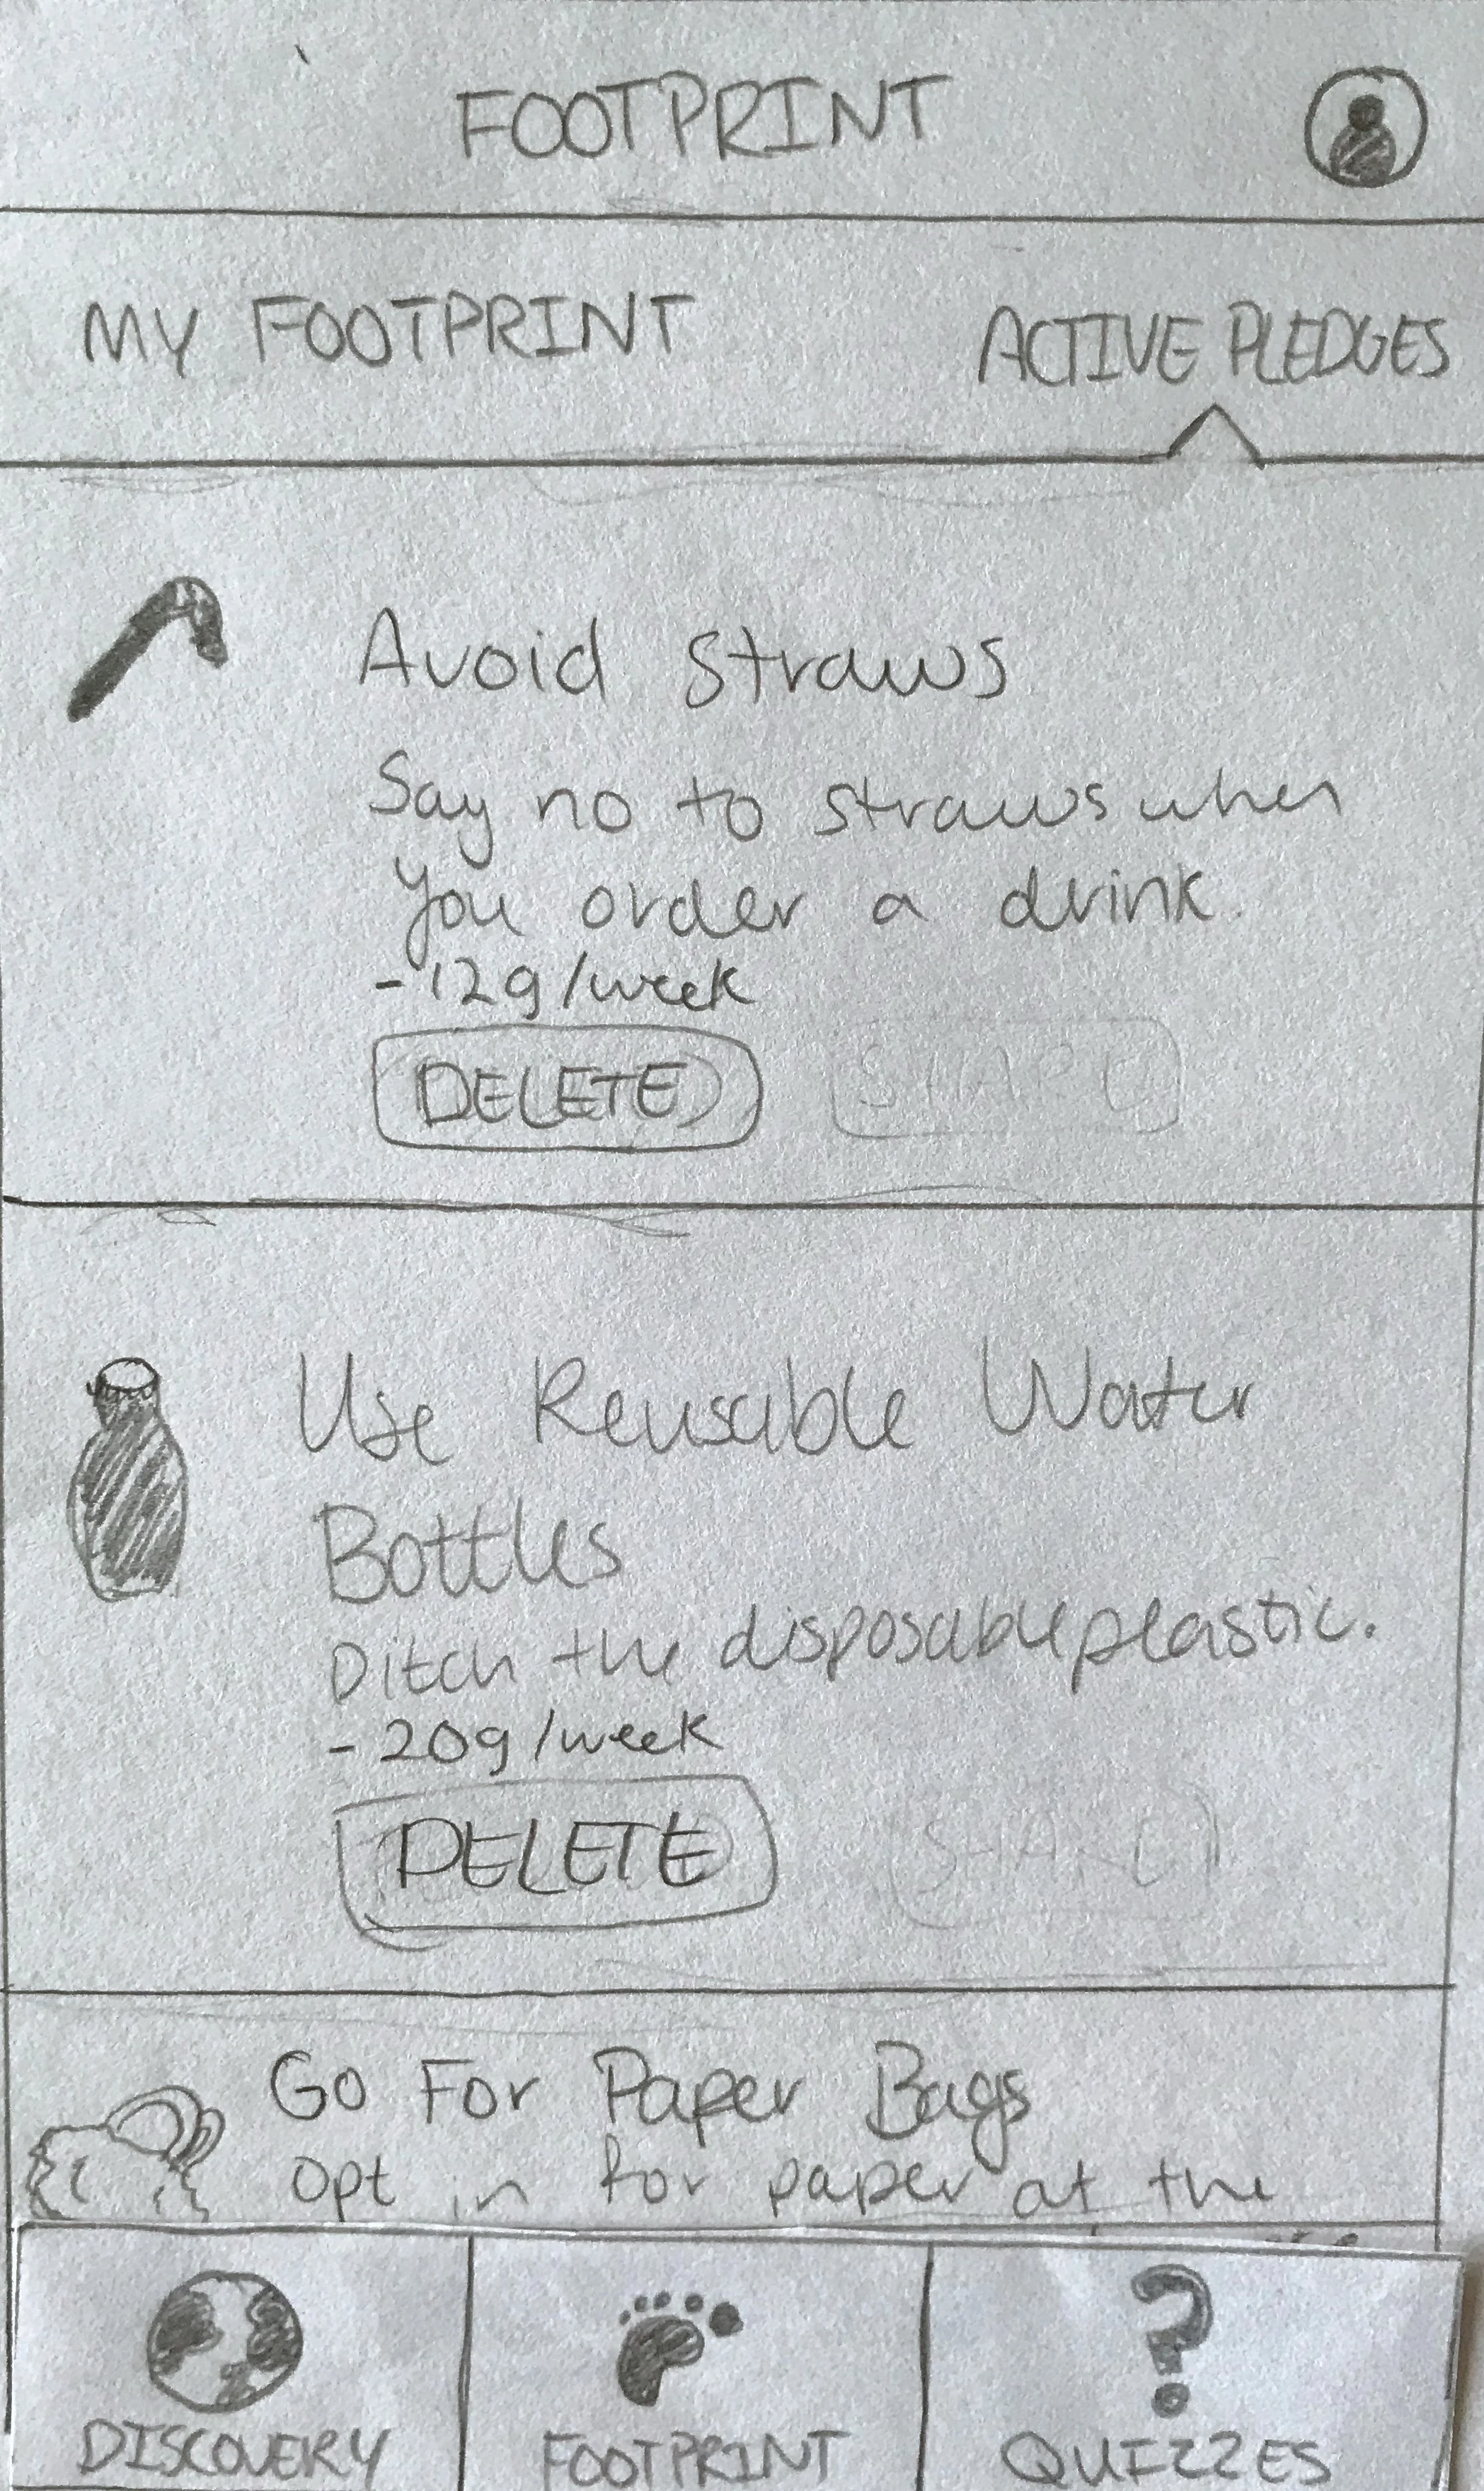 FOOTPRINT
MY FOOTPRINT
ACTIVE PLEDGES
Avoid Straws
Say no to straws when
you order a drink.
-12g/week
DELETE
Use Reusable Water
Bottles
Ditch the disposable plastic.
-20g/week
DELETE
Go For Paper Bags
Opt in for paper at the
DISCOVERY
FOOTPRINT
QUIZZES